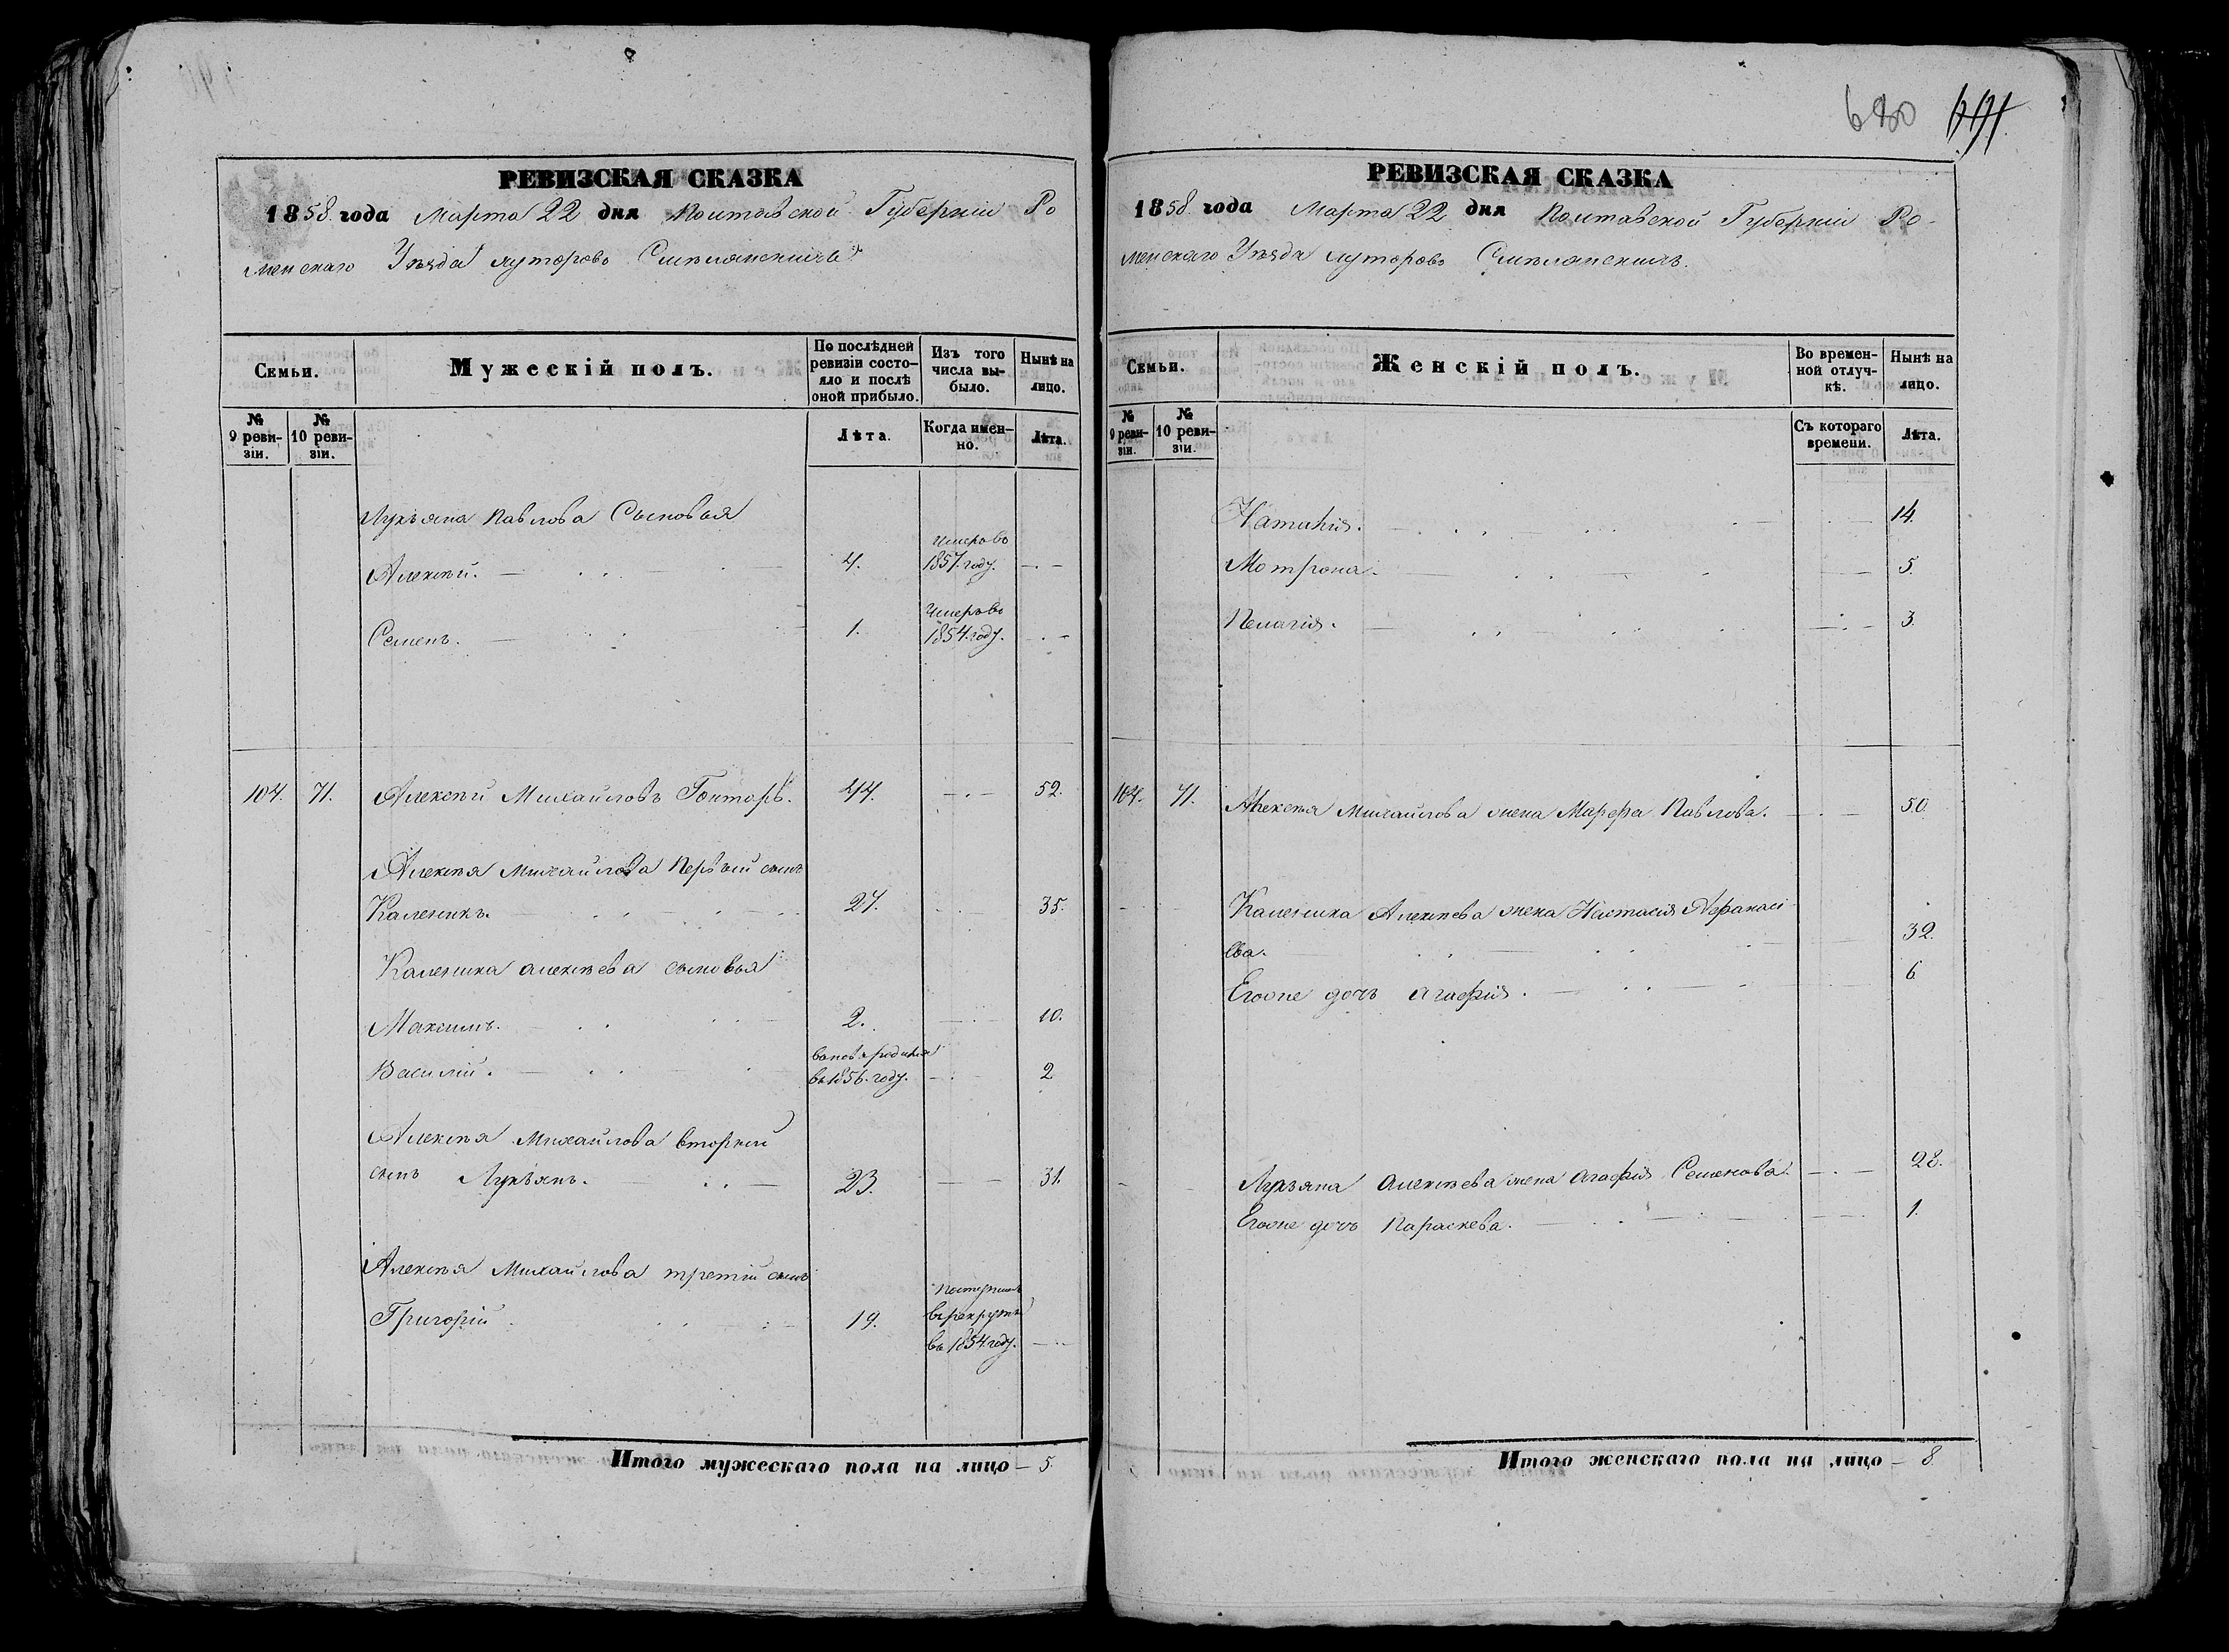 РЕВИЗСКАЯ СКАЗКА
1858 года Марта 22 дня Полтавской Губерніи Ро
менскаго Уѣзда хуторовъ Смѣлянскихъ
Семьи.
Мужескій полъ.
По послѣдней
ревизіи состо-
яло и послѣ
оной прибыло.
Изъ того
числа вы-
было.
Нынѣ на
лицо.
№
9 реви-
зіи.
№
10 реви-
зіи.
Лѣта.
Когда имен-
но.
Лѣта.
Лукъяна Павлова Сыновья
Умеръ въ
Алексѣй. 4. 1857. году.
Умеръ въ
Семенъ. 1. 1854. году.
104. 71. Алексѣй Михайловъ Гонтарь. 44. 52.
Алексѣя Михайлова Первый сынъ
Каленикъ. 27. 35.
Каленика Алексѣева сыновья
Максимъ. 2. 10.
Василій. въ 1856. году. 2
Алексѣя Михайлова вторый
сынъ Лукъянъ. 23. 31.
Алексѣя Михайлова третій сынъ
Поступилъ
Григорій 19. въ рекруты
въ 1854 году.
Итого мужескаго пола на лицо — 5.
680
РЕВИЗСКАЯ СКАЗКА
1858 года Марта 22 дня Полтавской Губерніи Ро-
менскаго Уѣзда хуторовъ Смѣлянскихъ.
Семьи.
Женскій полъ.
Во времен-
ной отлуч-
кѣ.
Нынѣ на
лицо.
№
9 реви-
зіи.
№
10 реви-
зіи.
Съ котораго
времени.
Лѣта.
14.
Мотрона. 5.
Пелагія. 3.
104. 71. Алексѣя Михайлова жена Марфа Павлова. 50.
Каленика Алексѣева жена Настасія Афанасі
ева. 32.
Егоже дочь Агафія. 6
Лукъяна Алексѣева жена Агафія Семенова. 28.
Егоже дочь Параскева. 1.
Итого женскаго пола на лицо — 8